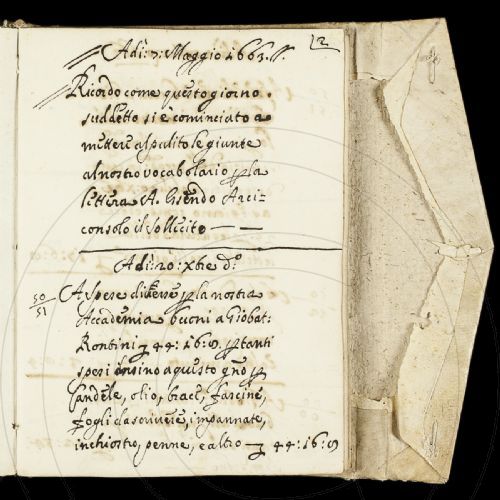 12
Adì: 7: Maggio 1663.
Ricordo come questo giorno
suddetto si è cominciato a
mettere al pulito le giunte
al nostro vocabolario p la
lettera A. Essendo Arci=
consolo il sollecito
Adì: 20: xbre d.º
50
51
A spese diverse p la nostra
Accademia buoni a Giobat:
Rontini 44: 16: 9. p tanti
spesi insino a questo gno p
candele, olio, brace, farcine,
fogli da scrivere, impannate,
inchiostro, penne, e altro 44: 16: 9